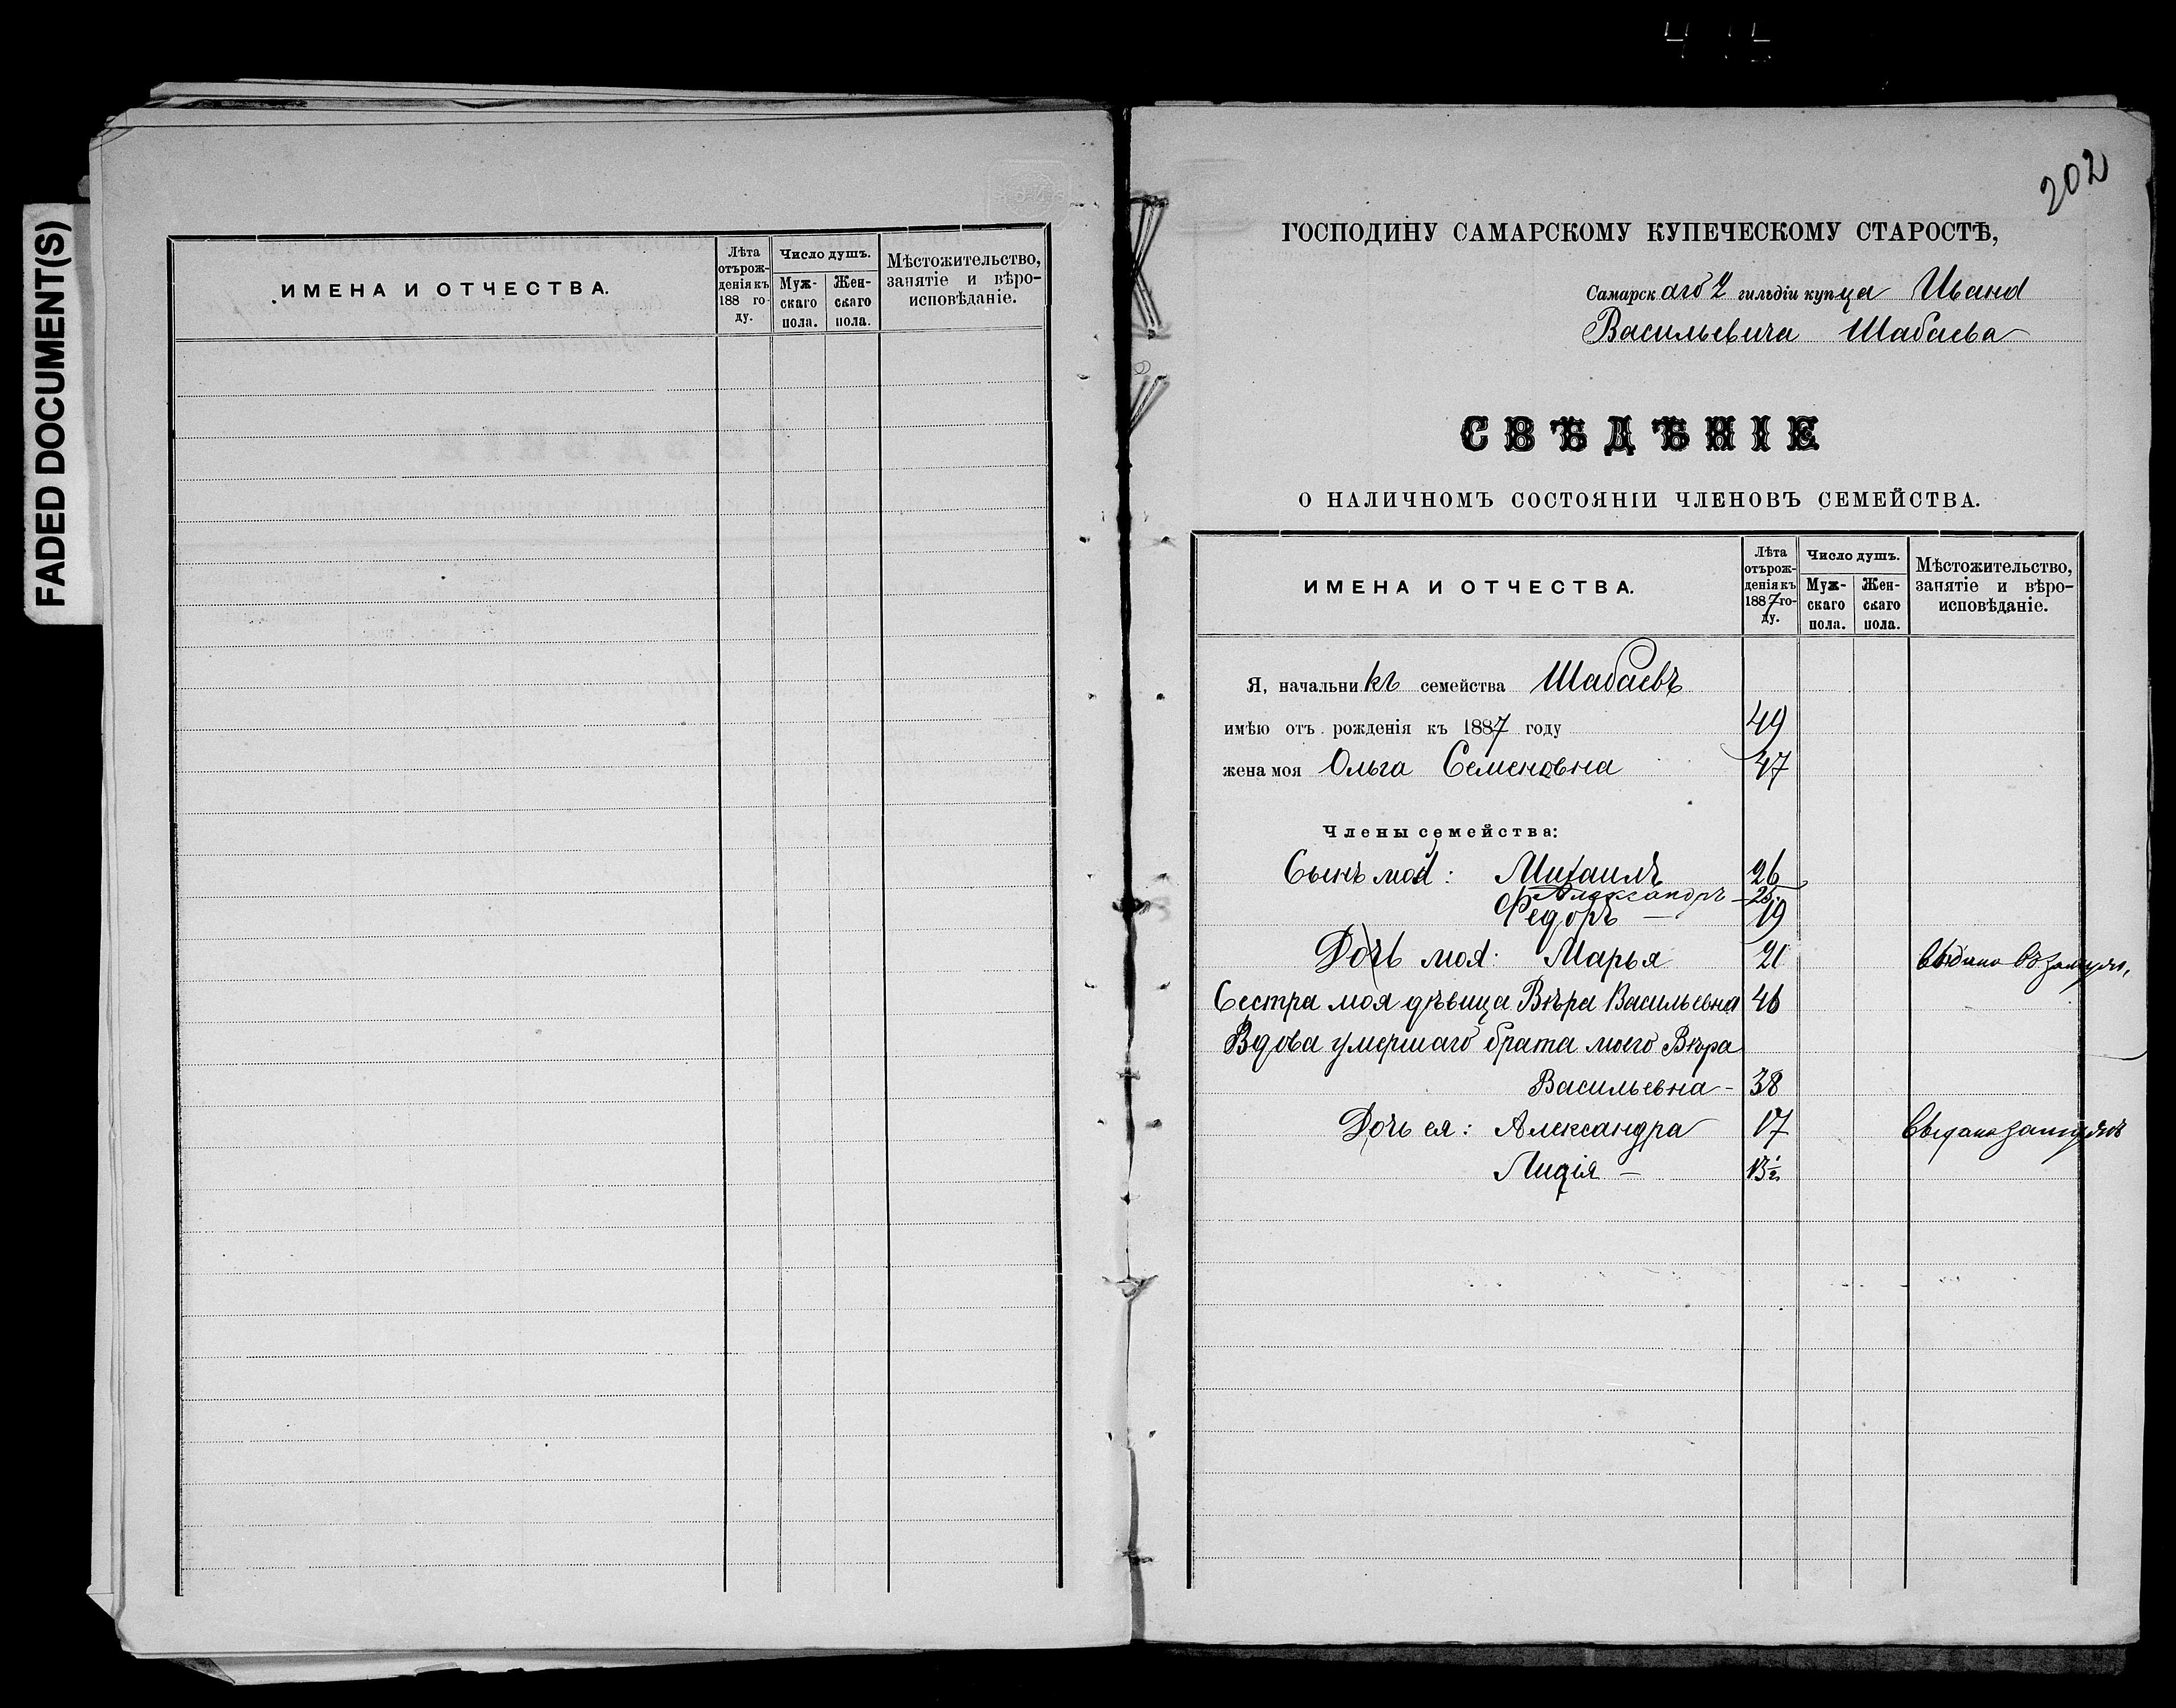 FADED DOCUMENT(S)
ИМЕНА И ОТЧЕСТВА.
Лѣта отърожденія къ 188 году.
Число душъ.
Мужскаго пола.
Женскаго пола.
Мѣстожительство, занятіе и вѣроисповѣданіе.
202
ГОСПОДИНУ САМАРСКОМУ КУПЕЧЕСКОМУ СТАРОСТѢ,
Самарскаго 2 гильдіи купца Ивана
Васильевича Шабаева
СВѢДѢНІЕ
О НАЛИЧНОМЪ СОСТОЯНІИ ЧЛЕНОВЪ СЕМЕЙСТВА.
ИМЕНА И ОТЧЕСТВА.
Лѣта отърожденія къ 1887 году.
Число душъ.
Мужскаго пола.
Женскаго пола.
Мѣстожительство, занятіе и вѣроисповѣданіе.
Я, начальникъ семейства Шабаевъ
имѣю отъ рожденія къ 1887 году 49
жена моя Ольга Семеновна 47
Члены семейства:
Сынъ мой: Михаилъ 26
Александръ — 25
Федоръ — 19
Дочь моя: Марья 21 выдана въ замуж.
Сестра моя дѣвица Вѣра Васильевна 46
Вдова умершаго брата моего Вѣра
Васильевна - 38
Дочь ея: Александра 17 Выдана замужъ
Лидія — 13½